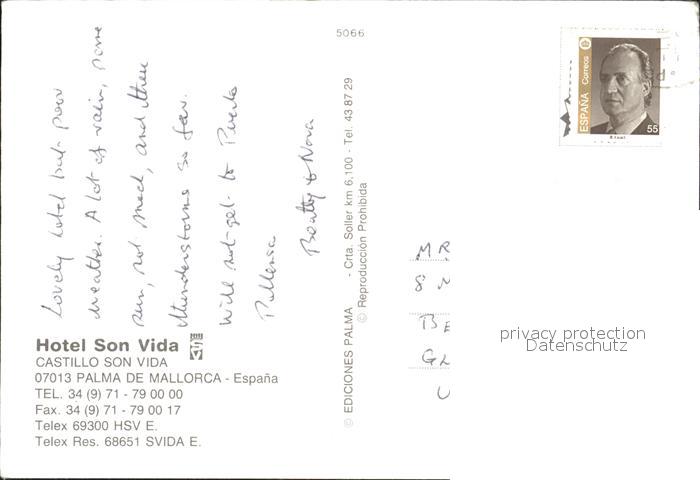 5066
ESPAÑA Correos
55
Lovely hotel but poor
weather. A lot of rain, some
sun, not much, and three
thunderstorms so far.
Will not get to Puerto
Pollensa
Beatty & Nova
Hotel Son Vida
CASTILLO SON VIDA
07013 PALMA DE MALLORCA - España
TEL. 34 (9) 71 - 79 00 00
Fax. 34 (9) 71 - 79 00 17
Telex 69300 HSV E.
Telex Res. 68651 SVIDA E.
© EDICIONES PALMA - Crta. Soller km 6,100 - Tel. 43 87 29
© Reproducción Prohibida
MR
8
BE
GL
U
privacy protection
Datenschutz